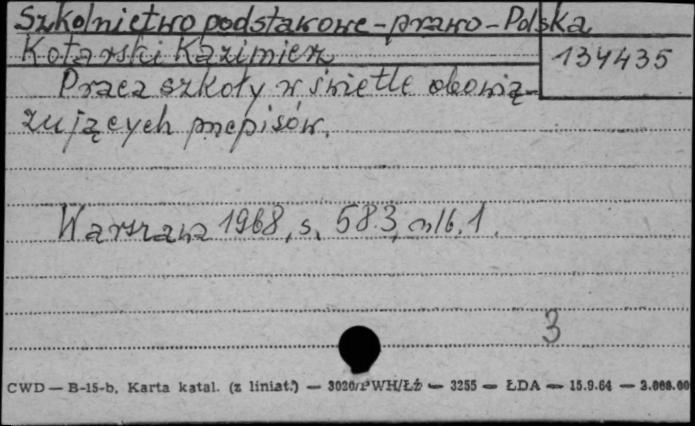 Szkolnictwo podstawowe - prawo - Polska
Kotarski Kazimierz
134435
Praca szkoły w świetle obowią-
zujących przepisów.
Warszawa 1968, s. 583, nlb. 1.
3
CWD — B-15-b. Karta katal. (z liniat.) — 3020/PWH/Łź — 3255 — ŁDA — 15.9.64 — 3.000.00